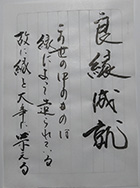 良縁成就
この世の中のものは
縁によって造られている
故に縁を大事に栄える